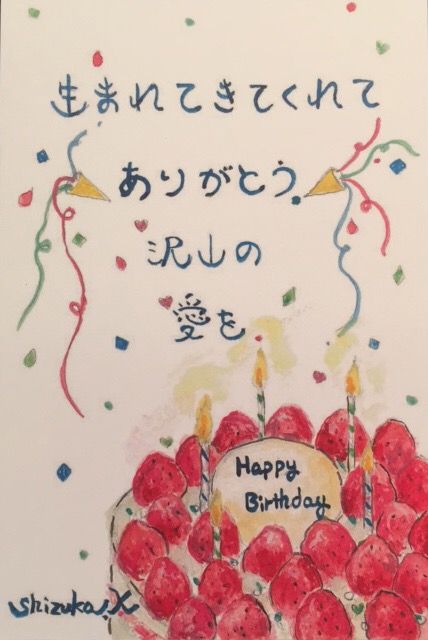 生まれてきてくれて
ありがとう。
沢山の
愛を
Happy
Birthday
shizuka.X